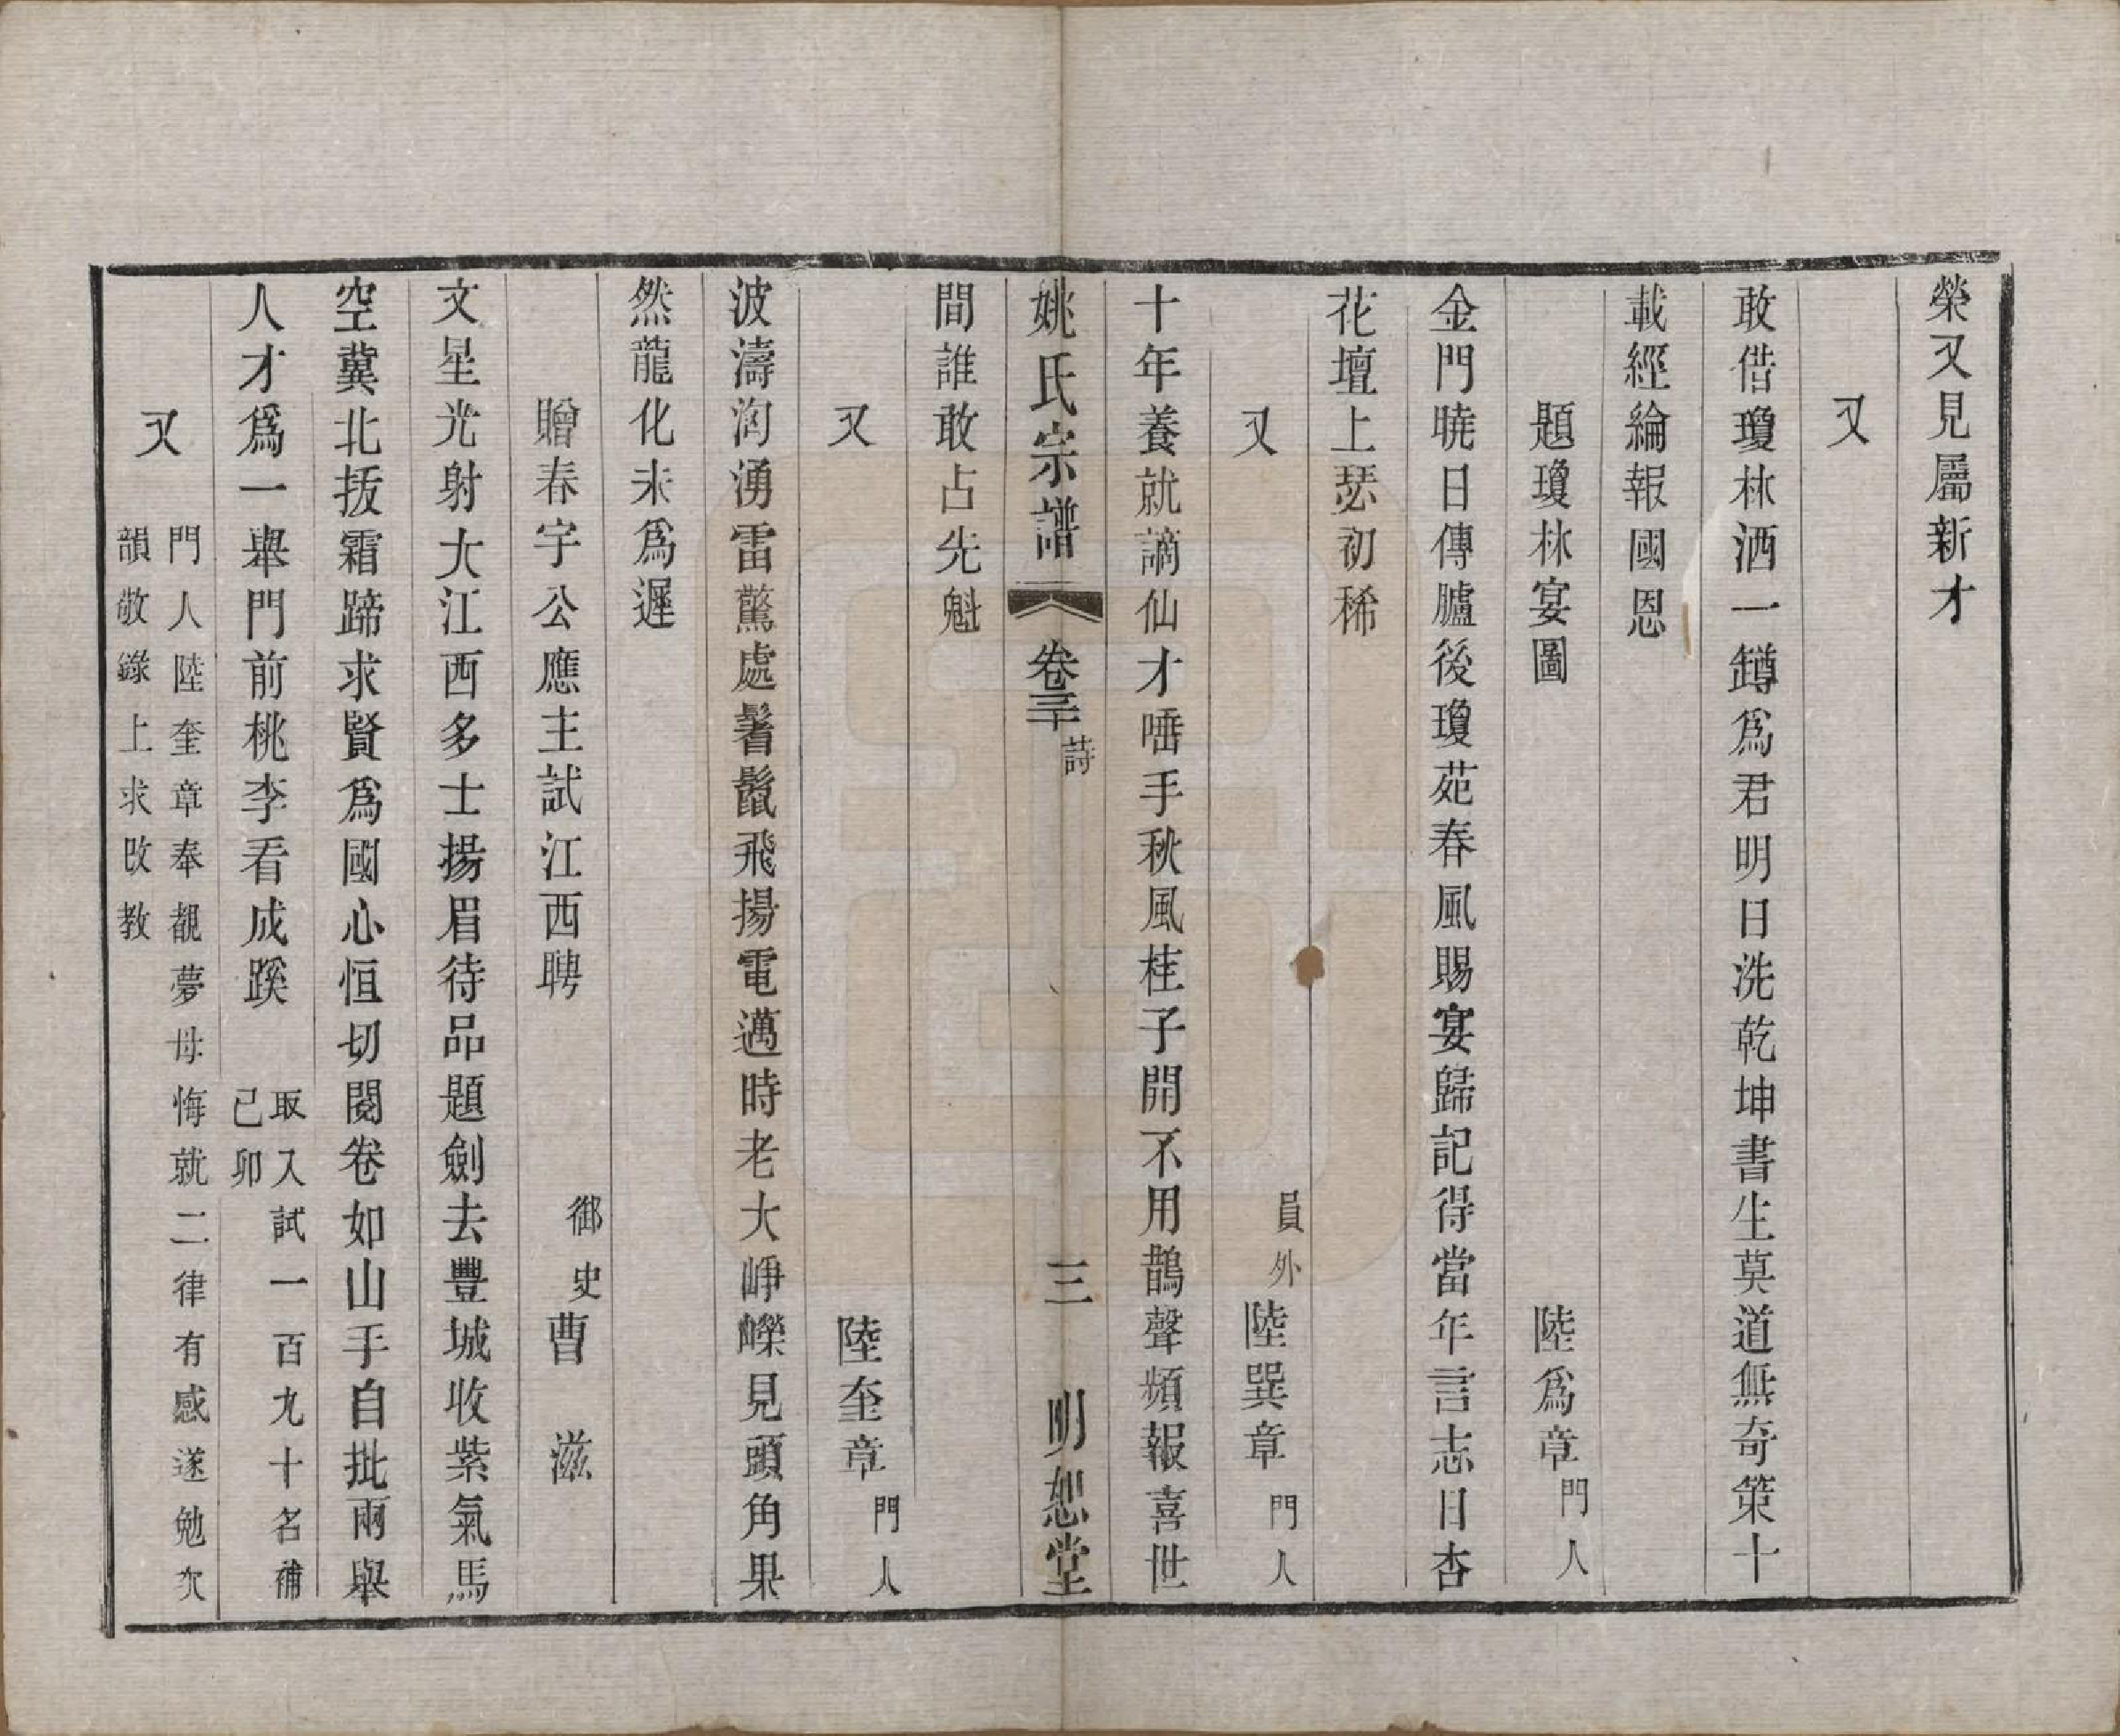 榮又見屬新才
又
敢借瓊林酒一罇爲君明日洗乾坤書生莫道無奇策十
載經綸報國恩
題瓊林宴圖　陸爲章門人
金門曉日傳臚後瓊苑春風賜宴歸記得當年言志日杏
花壇上瑟初稀
又　員外陸巽章門人
十年養就謫仙才唾手秋風桂子開不用鵲聲頻報喜世
姚氏宗譜　卷三十　詩　三　明恕堂
間誰敢占先魁
又　陸奎章門人
波濤洶湧雷驚處鬐鬣飛揚電邁時老大崢嶸見頭角果
然龍化未爲遲
贈春宇公應主試江西聘　御史曹滋
文星光射大江西多士揚眉待品題劍去豐城收紫氣馬
空冀北拔霜蹄求賢爲國心恒切閱卷如山手自批兩舉
人才爲一舉門前桃李看成蹊　取入試一百九十名補
己卯
又　門人陸奎章奉觀夢母悔就二律有感遂勉次
韻敬錄上求改教